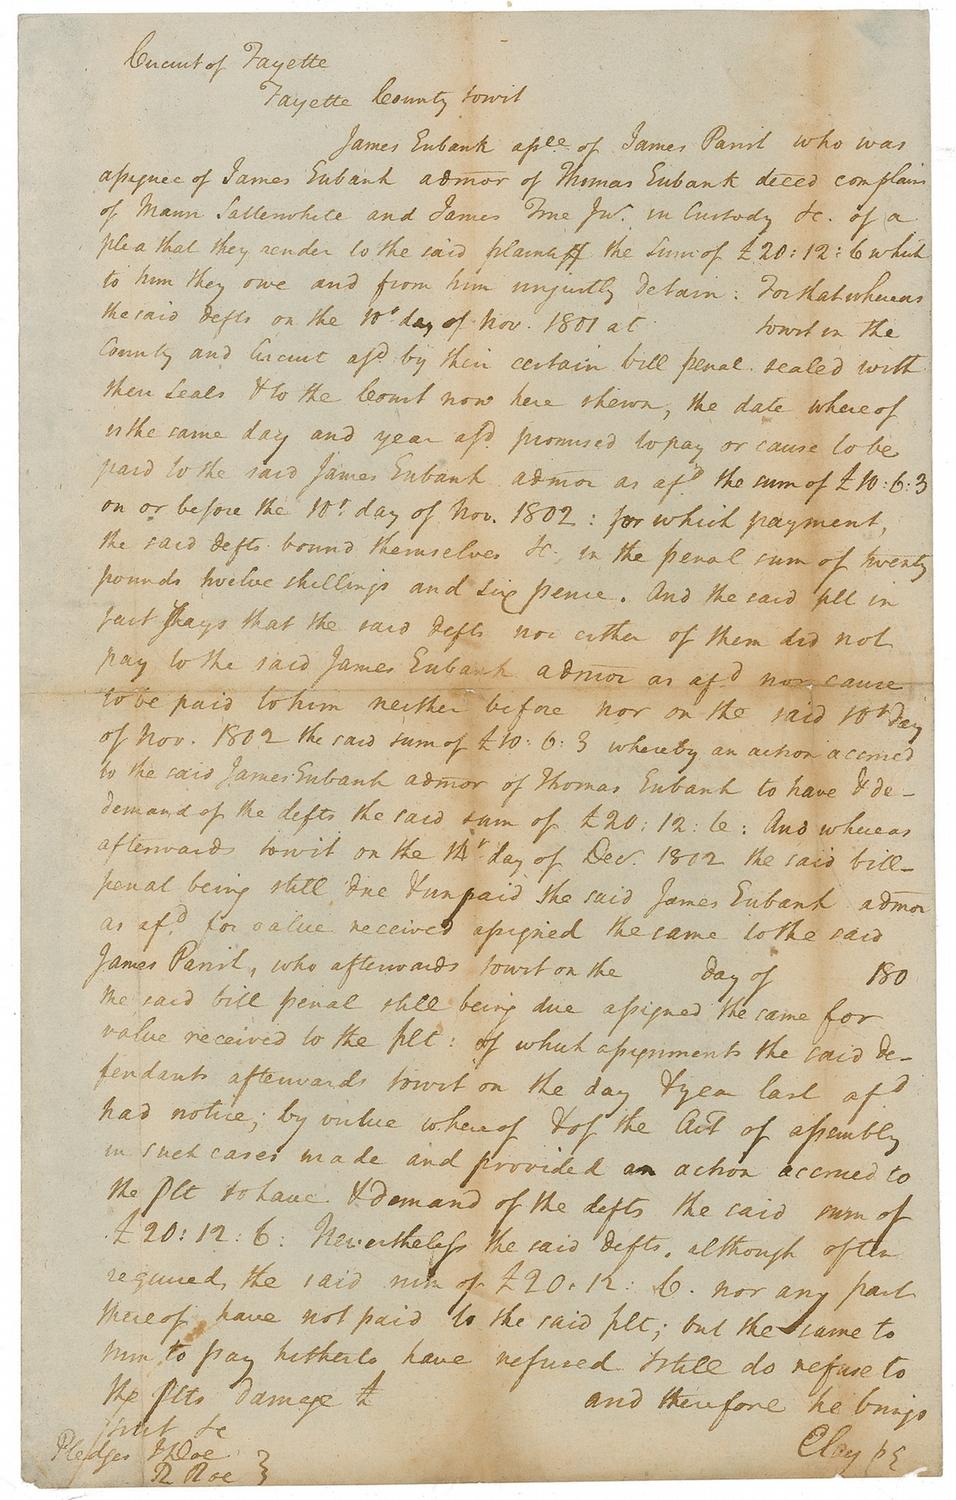 Circuit of Fayette
Fayette County towit
James Eubank assee of James Parish who was
assignee of James Eubank admor of Thomas Eubank deced complains
of Mann Satterwhite and James True Jur. in Custody &c. of a
plea that they render to the said plaintiff the Sum of £20:12:6 which
to him they owe and from him unjustly detain: For that whereas
the said Defts on the 10t day of Nov. 1801 at towit in the
County and Circuit afd by their certain bill penal sealed with
their Seals & to the Court now here shewn, the date whereof
is the same day and year afd. promised to pay or cause to be
paid to the said James Eubank admor as afd the sum of £10:6:3
on or before the 10t. day of Nov. 1802: for which payment,
the said Defts bound themselves &c. in the penal sum of twenty
pounds twelve shillings and six pence. And the said plt in
fact says that the said Defts nor either of them did not
pay to the said James Eubank admor as afd nor cause
to be paid to him neither before nor on the said 10th day
of Nov. 1802 the said sum of £10:6:3 whereby an action accrued
to the said James Eubank admor of Thomas Eubank to have & de-
demand of the defts the said sum of £20:12:6: And whereas
afterwards towit on the day of Decr. 1802 the said bill-
penal being still due & unpaid the said James Eubank admor
as afd. for value received assigned the same to the said
James Parish, who afterwards towit on the day of 180
the said bill penal still being due assigned the same for
value received to the plt: of which assignments the said de-
fendants afterwards towit on the day & year last afd
had notice; by virtue whereof & of the Act of assembly
in such cases made and provided an action accrued to
the Plt to have & demand of the defts the said sum of
£20:12:6: Nevertheless the said Defts. although often
required, the said sum of £20.12:6. nor any part
thereof have not paid to the said plt; but the same to
him to pay hitherto have refused & still do refuse to
the Plts damage £ and therefore he brings
suit &c
Clay pq
Pledges J Doe
R Roe }